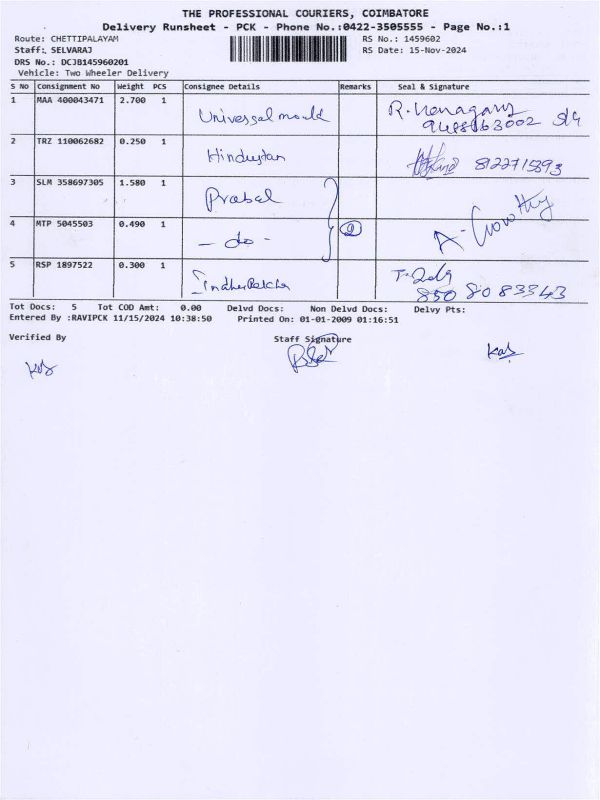 THE PROFESSIONAL COURIERS, COIMBATORE
Delivery Runsheet - PCK - Phone No.:0422-3505555 - Page No.:1
Route: CHETTIPALAYAM RS No.: 1459602
Staff: SELVARAJ RS Date: 15-Nov-2024
DRS No.: DCJB145960201
Vehicle: Two Wheeler Delivery
S No Consignment No Weight PCS Consignee Details Remarks Seal & Signature
1 MAA 400043471 2.700 1 Universal mould
2 TRZ 110062682 0.250 1 Hindustan 8122715893
3 SLM 358697305 1.580 1 Prabal
4 MTP 5045503 0.490 1 - do - 2 A- Gowthy
5 RSP 1897522 0.300 1
850 80 83343
Tot Docs: 5 Tot COD Amt: 0.00 Delvd Docs: Non Delvd Docs: Delvy Pts:
Entered By :RAVIPCK 11/15/2024 10:38:50 Printed On: 01-01-2009 01:16:51
Verified By Staff Signature